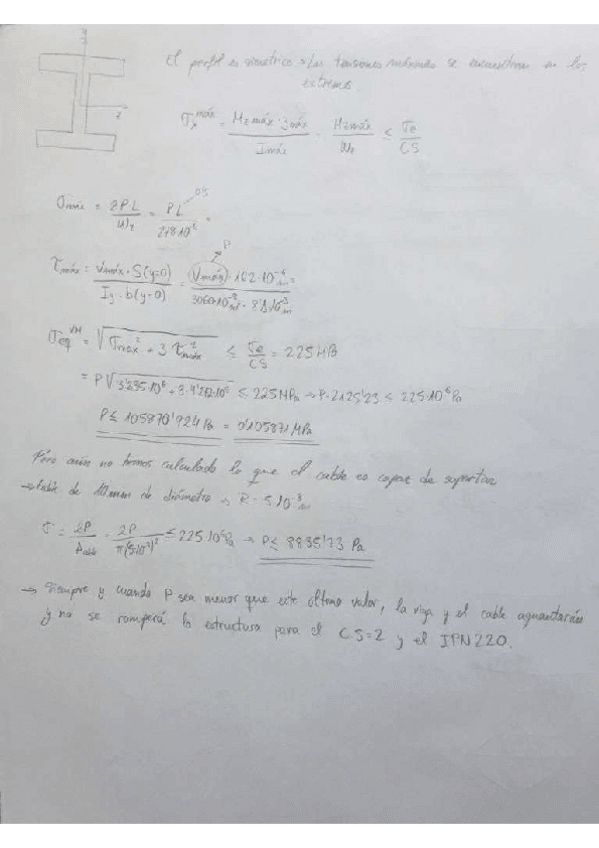 y
z
El perfil es simétrico → Las tensiones máximas se encuentran en los
extremos.
σx^máx = Mz máx · y máx / I máx = Mz máx / Wz ≤ σe / CS
σmáx = 2PL / Wz = PL / 278·10^-6 =
0'5
P
τmáx = Vmáx · S(y=0) / Iy · b(y=0) = Vmáx · 162·10^-6 / 3060·10^-8 · 8'1·10^-3 =
σeq^VM = √(σmáx² + 3 τmáx²) ≤ σe / CS = 225 MPa
= P√(3'235·10^6 + 3·4'272·10^5) ≤ 225 MPa → P·2125'23 ≤ 225·10^6 Pa
P ≤ 105870'924 Pa = 0'105871 MPa
Pero aún no hemos calculado lo que el cable es capaz de soportar
→ Cable de 10mm de diámetro → R = 5·10^-3 m
σ = 2P / Acable = 2P / π(5·10^-3)² ≤ 225·10^6 Pa → P ≤ 8835'73 Pa
→ Siempre y cuando P sea menor que este último valor, la viga y el cable aguantarán
y no se romperá la estructura para el CS=2 y el IPN220.